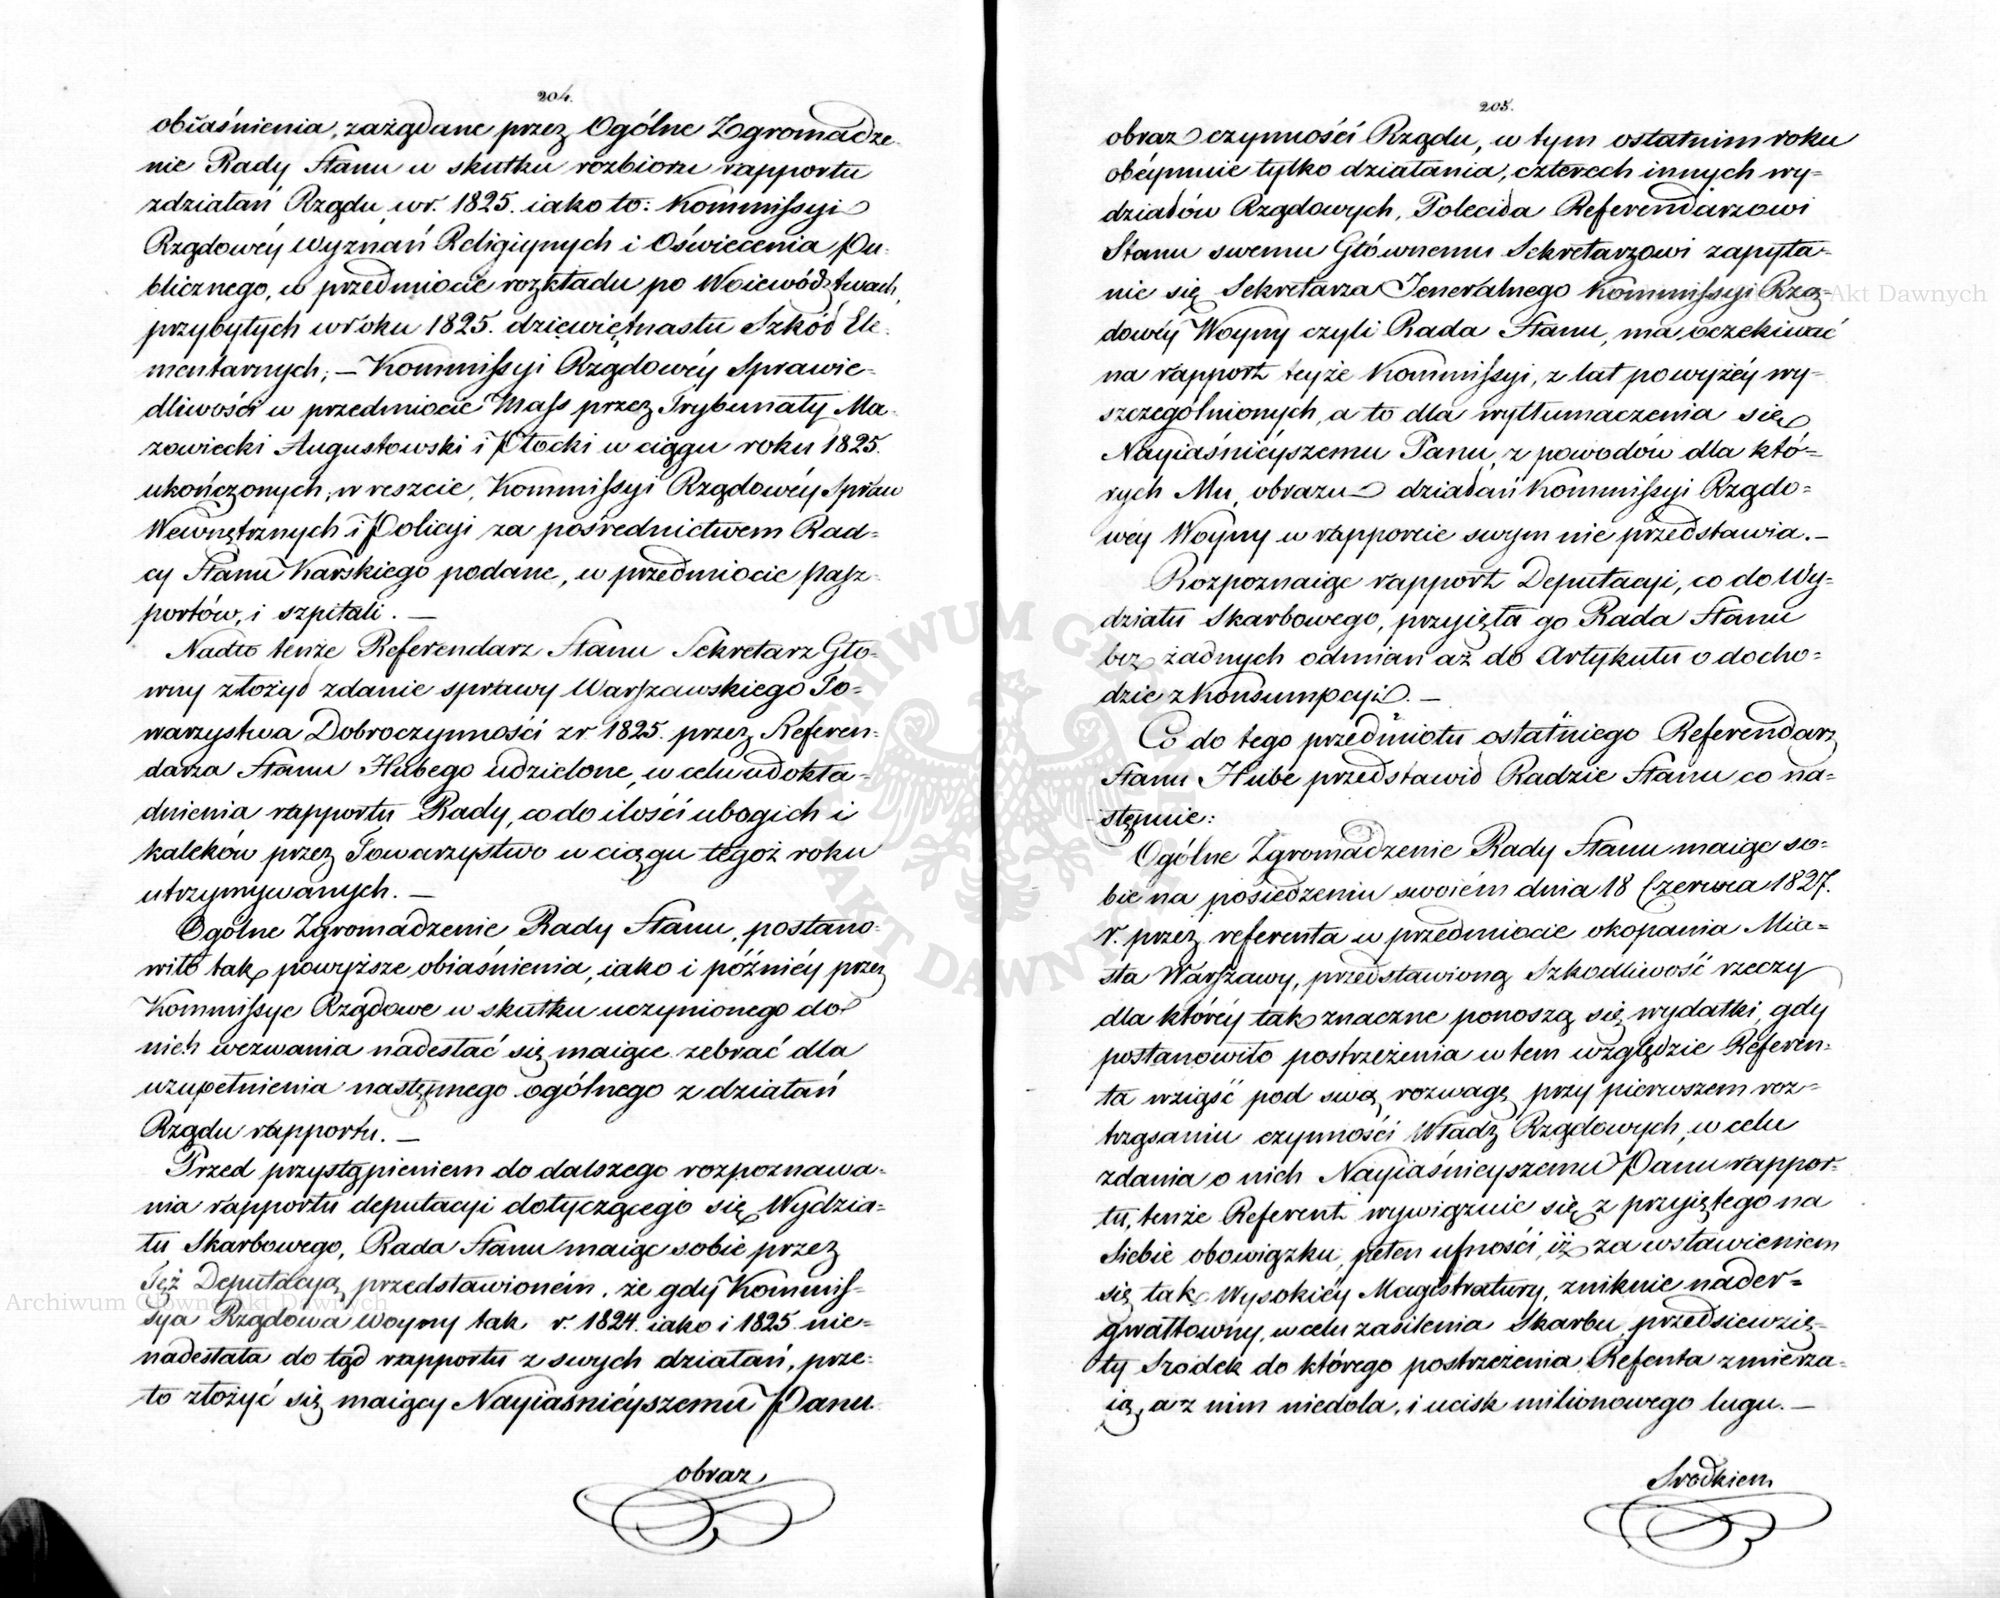 204.
obiaśnienia, zażądane przez Ogólne Zgromadze-
nie Rady Stanu w skutku rozbioru rapportu
z działań Rządu w r. 1825. iako to: Kommissyi
Rządowéy Wyznań Religiynych i Oświecenia Pu-
blicznego, w przedmiocie rozkładu po Woiewództwach,
przybyłych w roku 1825. dziewiętnastu Szkół Ele-
mentarnych; — Kommissyi Rządowéy Sprawie-
dliwości w przedmiocie Mass przez Trybunały Ma-
zowiecki Augustowski i Płocki w ciągu roku 1825.
ukończonych; w reszcie, Kommissyi Rządowéy Spraw
Wewnętrznych i Policyi za pośrednictwem Rad-
cy Stanu Karskiego podane, w przedmiocie pasz-
portów, i szpitali. —
Nadto tenże Referendarz Stanu Sekretarz Głó-
wny złożył zdanie sprawy Warszawskiego To-
warzystwa Dobroczynności z r. 1825. przez Referen-
darza Stanu Hubego udzielone, w celu udokła-
dnienia rapportu Rady, co do ilości ubogich i
kaleków przez Towarzystwo w ciągu tegoż roku
utrzymywanych. —
Ogólne Zgromadzenie Rady Stanu, postano-
wiło tak powyższe obiaśnienia, iako i późniéy przez
Kommissye Rządowe w skutku uczynionego do
nich wezwania nadesłać się maiące zebrać dla
uzupełnienia następnego ogólnego z działań
Rządu rapportu. —
Przed przystąpieniem do dalszego rozpoznawa-
nia rapportu deputacyi dotyczącego się Wydzia-
łu Skarbowego, Rada Stanu maiąc sobie przez
Też Deputacyą przedstawioném, że gdy Kommis-
sya Rządowa Woyny tak r. 1824. iako i 1825. nie-
nadesłała do tąd rapportu z swych działań, prze-
to złożyć się maiący Nayiaśnieyszemu Panu
obraz
205.
obraz czynności Rządu, w tym ostatnim roku
obeymuie tylko działania, czterech innych wy-
działów Rządowych, Poleciła Referendarzowi
Stanu swemu Głównemu Sekretarzowi zapyta-
nie się Sekretarza Jeneralnego Kommissyi Rzą-
dowéy Woyny czyli Rada Stanu, ma oczekiwać
na rapport teyże Kommissyi, z lat powyżéy wy-
szczególnionych, a to dla wytłumaczenia się
Nayiaśnieyszemu Panu, z powodów dla któ-
rych Mu obrazu działań Kommissyi Rządo-
wéy Woyny w rapporcie swym nie przedstawia. —
Rozpoznaiąc rapport Deputacyi, co do Wy-
działu Skarbowego, przyięła go Rada Stanu
bez żadnych odmian aż do Artykułu o docho-
dzie z Konsumpcyi. —
Co do tego przedmiotu ostatniego Referendarz
Stanu Hube przedstawił Radzie Stanu co na-
stępuie:
Ogólne Zgromadzenie Rady Stanu maiąc so-
bie na posiedzeniu swoiém dnia 18 Czerwca 1827.
r. przez referenta w przedmiocie okopania Mia-
sta Warszawy, przedstawioną Szkodliwość rzeczy
dla któréy tak znaczne ponoszą się wydatki, gdy
postanowiło postrzeżenia w tem względzie Referen-
ta wziąść pod swą rozwagę przy pierwszem roz-
trząsaniu czynności Władz Rządowych, w celu
zdania o nich Nayiaśnieyszemu Panu rappor-
tu, tenże Referent wywiązuie się z przyiętego na
Siebie obowiązku, pełen ufności, iż za wstawieniem
się tak Wysokiéy Magistratury, zniknie nader-
gwałtowny, w celu zasilenia Skarbu przedsiewzię-
ty Srodek do którego postrzeżenia Refenta zmierza-
ią, a z nim niedola, i ucisk milionowego lugu. —
Srodkiem
Archiwum Główne Akt Dawnych